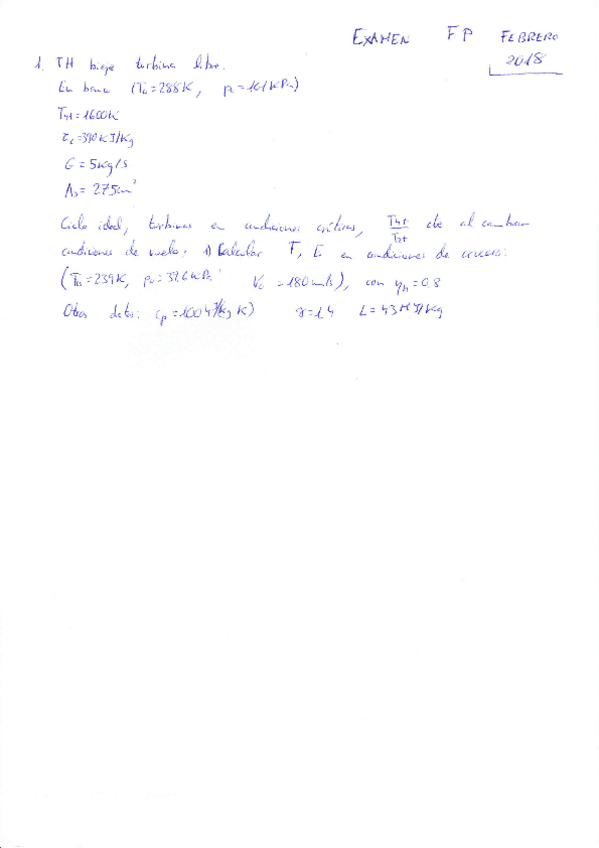 EXAMEN FP FEBRERO
2018
1. TH bieje turbina libre.
En banco (T₀=288K, p₀=101kPa)
T₄t=1600K
τc=390kJ/kg
G=5kg/s
A₉=275cm²
Ciclo ideal, turbinas en condiciones críticas, T₄t/T₅t cte al cambiar
condiciones de vuelo: 1) Calcular F, en condiciones de crucero:
(T₀=239K, p₀=37,6kPa V₀=180m/s), con ηh=0,8
Otros datos: cp=1004J/kgK) γ=1,4 L=43MJ/kg